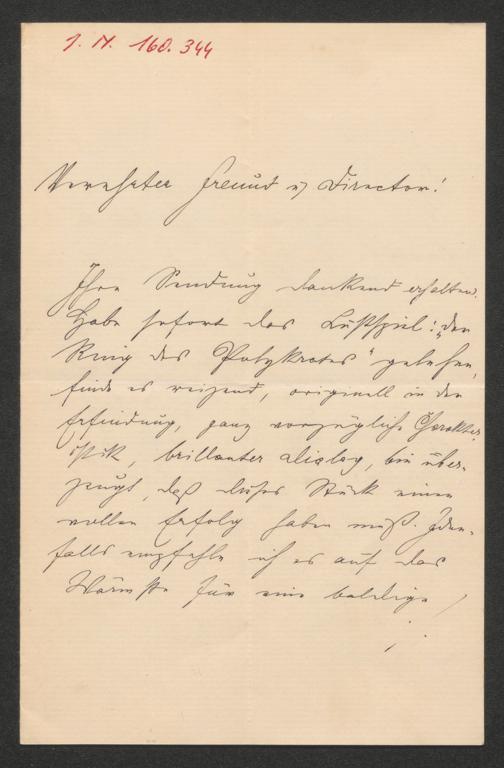 J. N. 160.344
Verehrter Freund u Director!
Ihre Sendung dankend erhalten.
Habe sofort das Lustspiel: „der
Ring des Polykrates“ gelesen,
finde es reizend, originell in der
Erfindung, ganz vorzügliche Charakter-
istik, brillanter Dialog, bin über-
zeugt, daß dieses Stück einen
vollen Erfolg haben muß. Jeden-
falls empfehle ich es auf das
Wärmste für eine baldige